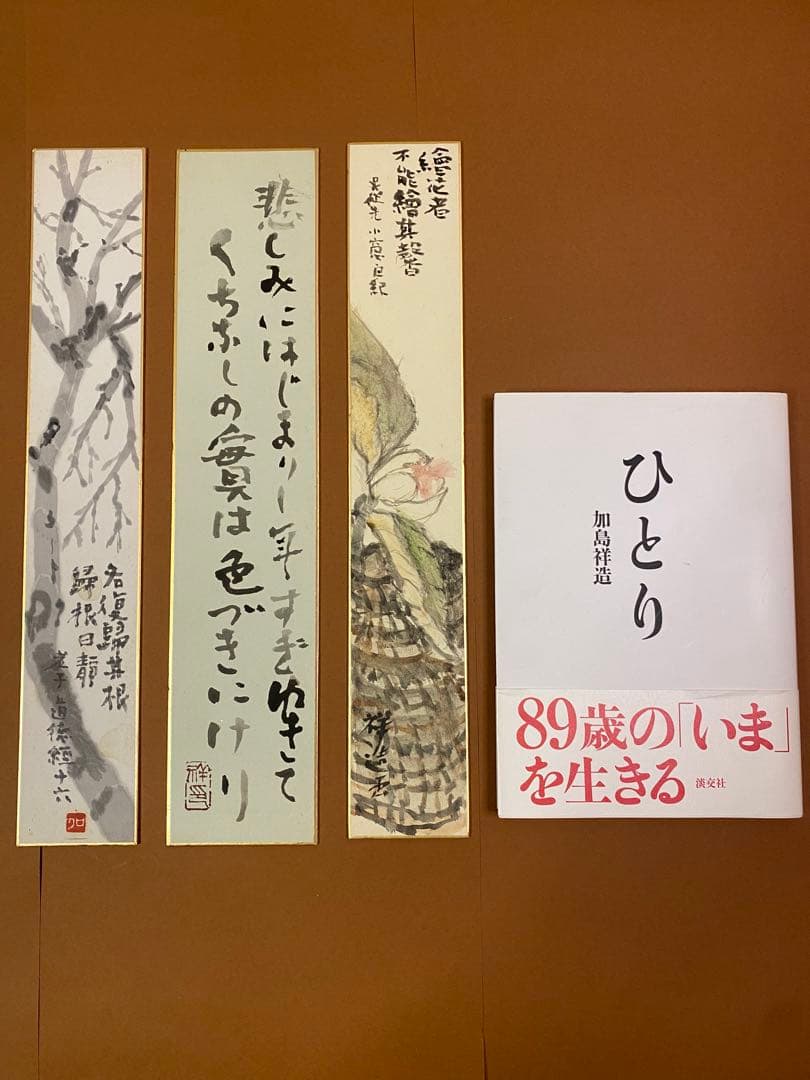 各復歸其根
歸根曰靜
老子 道徳經十六
加
悲しみにはじまりし年すぎゆきて
くちなしの實は色づきにけり
繪花者
不能繪其馨
呉従先 小窓自紀
ひとり
加島祥造
89歳の「いま」
を生きる
淡交社